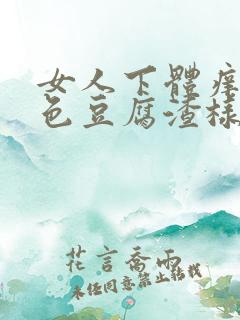 女人下體癢
色豆腐渣樣
花言喬雨
未经同意禁止转载